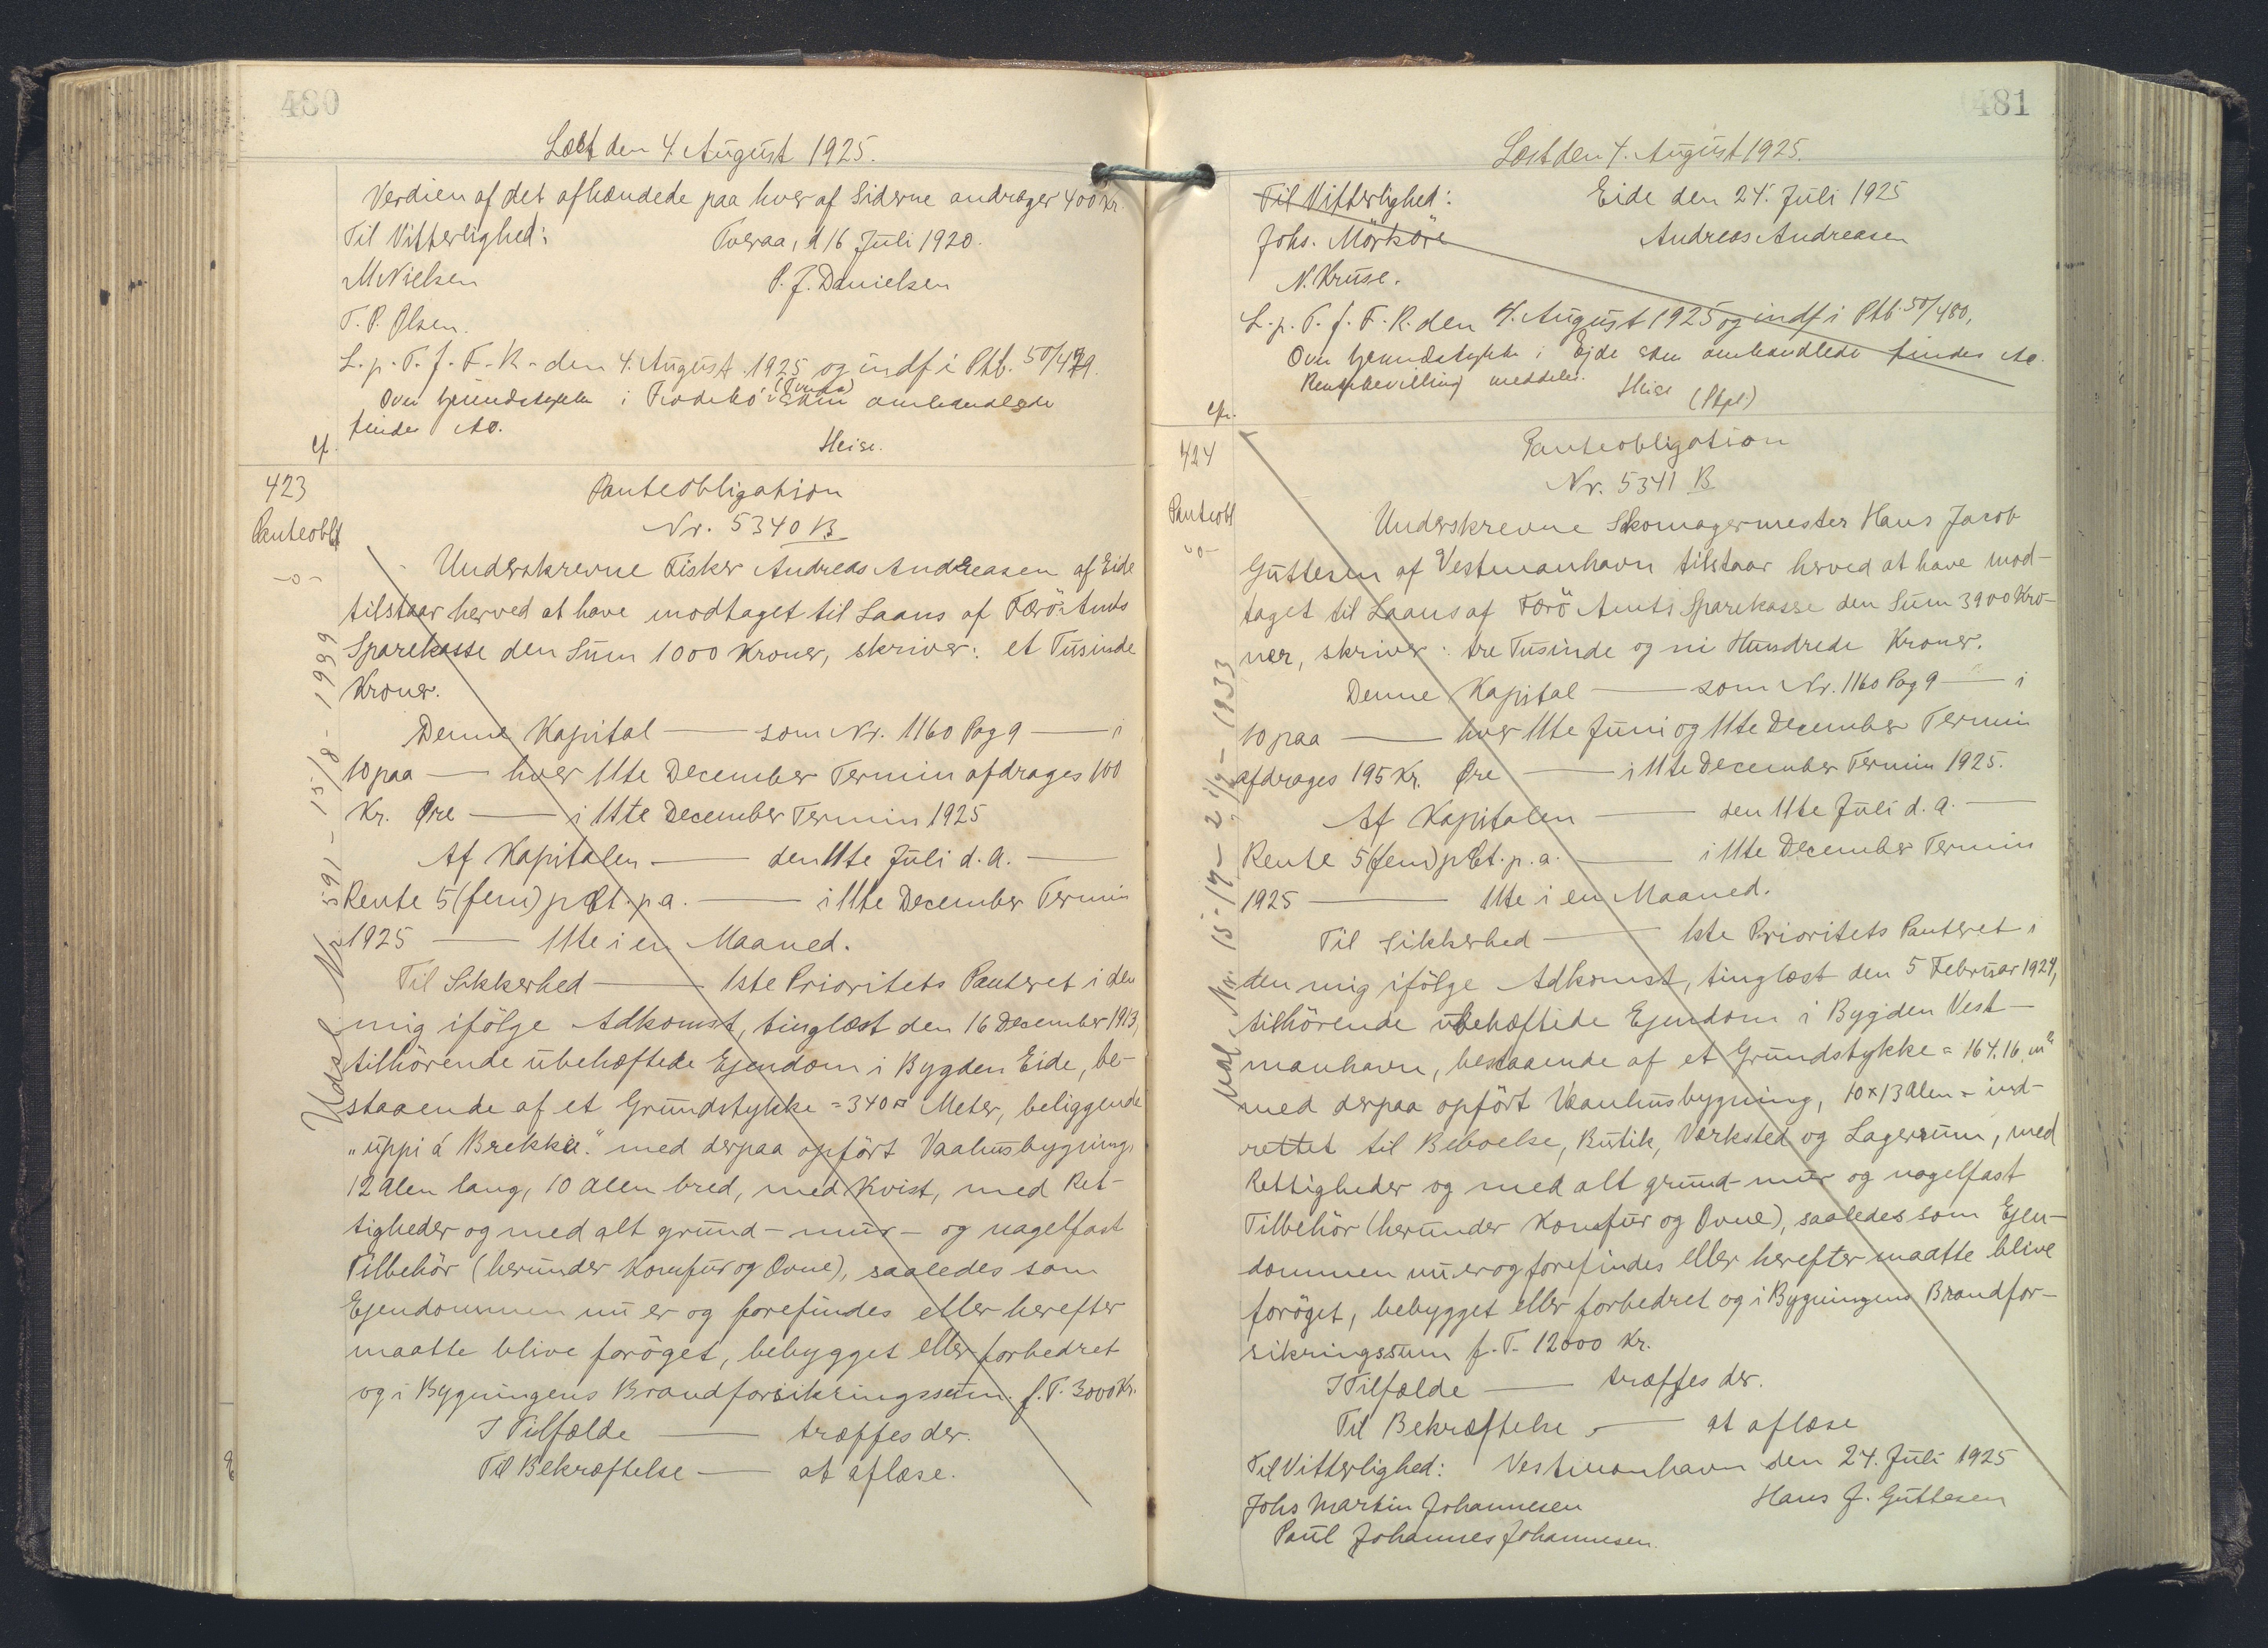 480
Læst den 4. August 1925.
Verdien af det afhændede paa hver af Siderne andrager 400 Kr.
Til Vitterlighed: Tveraa, d 16 Juli 1920.
M Nielsen P. J. Danielsen
T. P. Olsen.
L. p. T. f. F. R. den 4. August 1925 og indf i Ptb. 50/479.
Over Grundstykke i Frodebö (Tveraa) som omhandlede
findes Ao.
cf. Heise.
423 Panteobligation
Panteobl Nr. 5340 B
-o- Underskrevne Fisker Andreas Andreasen af Eide
tilstaar herved at have modtaget til Laans af Færö Amts
Sparekasse den Sum 1000 Kroner, skriver: et Tusinde
Kroner.
Denne Kapital — som Nr. 1160 Pag 9 — i
10 paa — hver 11te December Termin afdrages 100
Kr. Øre — i 11te December Termin 1925
Af Kapitalen — den 11te Juli d. A. —
Rente 5 (fem) pCt. p.a. — i 11te December Termin
1925 — 11te i en Maaned.
Til Sikkerhed — 1ste Prioritets Panteret i den
mig ifölge Adkomst, tinglæst den 16 December 1913,
tilhörende ubehæftede Ejendom i Bygden Eide, be-
staaende af et Grundstykke = 340 □ Meter, beliggende
„uppi á Brekku." med derpaa opfört Vaahusbygning,
12 Alen lang, 10 Alen bred, med Kvist, med Ret-
tigheder og med alt grund- mur- og nagelfast
Tilbehör (herunder Komfur og Ovne), saaledes som
Ejendommen nu er og forefindes eller herefter
maatte blive foröget, bebygget eller forbedret
og i Bygningens Brandforsikringssum f. T. 3000 Kr.
I Tilfælde — træffes der.
Til Bekræftelse — at aflæse.
Udsl Nr 591 - 15/8 - 1999
481
Læst den 4. August 1925.
Til Vitterlighed: Eide den 24. Juli 1925
Johs. Mörköre Andreas Andreasen
N. Kruse.
L. p. T. f. F. R. den 4. August 1925 og indf i Ptb. 50/480,
Over Grundstykke i Ejde som omhandlede findes Ao.
Rentebevilling meddeles. Heise (Ptpl)
cfr.
424 Panteobligation
Nr. 5341 B
Panteobl Underskrevne Skomagermester Hans Jacob
-o-
Guttesen af Vestmanhavn tilstaar herved at have mod-
taget til Laans af Færö Amts Sparekasse den Sum 3900 Kro-
ner, skriver: tre Tusinde og ni Hundrede Kroner.
Denne Kapital — som Nr. 1160 Pag 9 — i
10 paa — hver 11te Juni og 11te December Termin
afdrages 195 Kr. Øre — i 11te December Termin 1925.
Af Kapitalen — den 11te Juli d. a. —
Rente 5 (fem) pCt. p. a. — i 11te December Termin
1925 — 11te i en Maaned.
Til Sikkerhed — 1ste Prioritets Panteret i
den mig ifölge Adkomst, tinglæst den 5 Februar 1924,
tilhörende ubehæftede Ejendom i Bygden Vest-
manhavn, bestaaende af et Grundstykke = 164.16 m²
med derpaa opfört Vaanhusbygning, 10 x 13 Alen - ind-
rettet til Beboelse, Butik, Værksted og Lagerrum, med
Rettigheder og med alt grund- mur og nagelfast
Tilbehör (herunder Komfur og Ovne), saaledes som Ejen-
dommen nu er og forefindes eller herefter maatte blive
foröget, bebygget eller forbedret og i Bygningens Brandfor-
sikringssum f. T. 12000 Kr.
I Tilfælde — træffes der.
Til Bekræftelse — at aflæse
Til Vitterlighed: Vestmanhavn den 24. Juli 1925
Johs Martin Johannesen Hans J. Guttesen
Paul Johannes Johannesen.